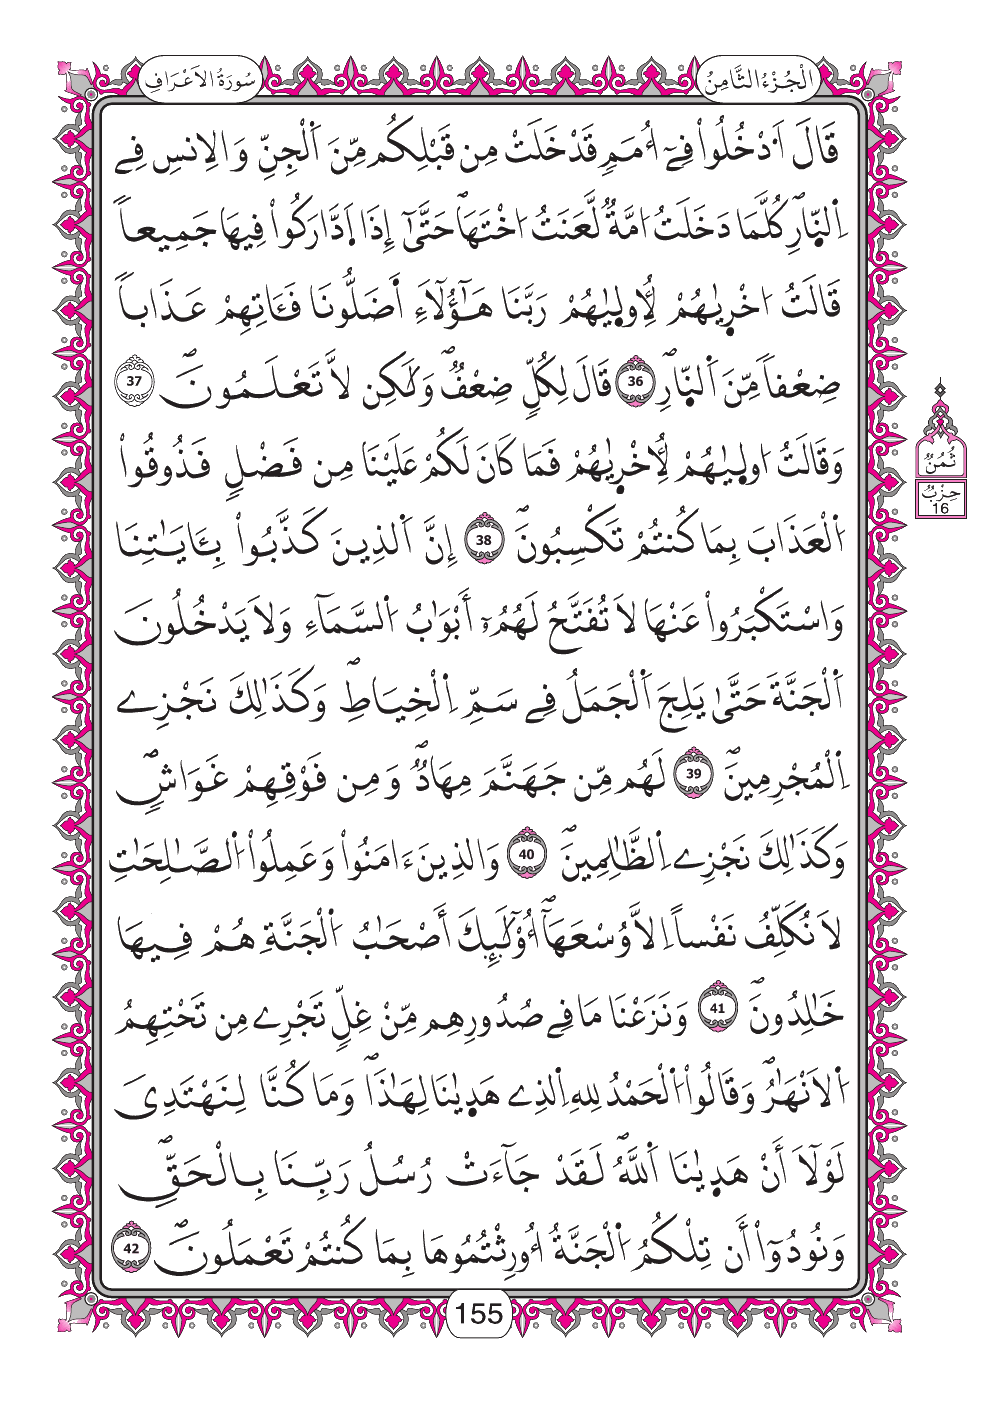 الْجُزْءُ الثَّامِنُ
سُورَةُ الاَعْرَافِ
قَالَ اَ۟دْخُلُواْ فِےٓ أُمَمٖ قَدْ خَلَتْ مِن قَبْلِكُم مِّنَ اَ۬لْجِنِّ وَالِانسِ فِے
اِ۬لنّ۪ارِۖ كُلَّمَا دَخَلَتُ امَّةٞ لَّعَنَتُ اخْتَهَاۖ حَتَّىٰٓ إِذَا اَ۪دَّارَكُواْ فِيهَا جَمِيعاٗ
قَالَتُ اخْر۪يٰهُمْ لِأُول۪يٰهُمْ رَبَّنَا هَٰٓؤُلَآءِ اَضَلُّونَا فَـَٔاتِهِمْ عَذَاباٗ
ضِعْفاٗ مِّنَ اَ۬لنّ۪ارِۖ 36 قَالَ لِكُلّٖ ضِعْفٞۖ وَلَٰكِن لَّا تَعْلَمُونَۖ 37
وَقَالَتُ اول۪يٰهُمْ لِأُخْر۪يٰهُمْ فَمَا كَانَ لَكُمْ عَلَيْنَا مِن فَضْلٖ فَذُوقُواْ
اُ۬لْعَذَابَ بِمَا كُنتُمْ تَكْسِبُونَۖ 38 إِنَّ اَ۬لذِينَ كَذَّبُواْ بِـَٔايَٰتِنَا
وَاسْتَكْبَرُواْ عَنْهَا لَا تُفَتَّحُ لَهُمُۥٓ أَبْوَٰبُ اُ۬لسَّمَآءِ وَلَا يَدْخُلُونَ
اَ۬لْجَنَّةَ حَتَّىٰ يَلِجَ اَ۬لْجَمَلُ فِے سَمِّ اِ۬لْخِيَاطِۖ وَكَذَٰلِكَ نَجْزِے
اِ۬لْمُجْرِمِينَۖ 39 لَهُم مِّن جَهَنَّمَ مِهَادٞۖ وَمِن فَوْقِهِمْ غَوَاشٖۖ
وَكَذَٰلِكَ نَجْزِے اِ۬لظَّٰلِمِينَۖ 40 وَالذِينَ ءَامَنُواْ وَعَمِلُواْ اُ۬لصَّٰلِحَٰتِ
لَا نُكَلِّفُ نَفْساً اِلَّا وُسْعَهَآۖ أُوْلَٰٓئِكَ أَصْحَٰبُ اُ۬لْجَنَّةِ هُمْ فِيهَا
خَٰلِدُونَۖ 41 وَنَزَعْنَا مَا فِے صُدُورِهِم مِّنْ غِلّٖ تَجْرِے مِن تَحْتِهِمُ
اُ۬لَانْهَٰرُۖ وَقَالُواْ اُ۬لْحَمْدُ لِلهِ اِ۬لذِے هَد۪يٰنَا لِهَٰذَاۖ وَمَا كُنَّا لِنَهْتَدِىَ
لَوْلَآ أَنْ هَد۪يٰنَا اَ۬للَّهُۖ لَقَدْ جَآءَتْ رُسُلُ رَبِّنَا بِالْحَقِّۖ
وَنُودُوٓاْ أَن تِلْكُمُ اُ۬لْجَنَّةُ أُورِثْتُمُوهَا بِمَا كُنتُمْ تَعْمَلُونَۖ 42
ثُمُنٌ
حِزْبٌ
16
155